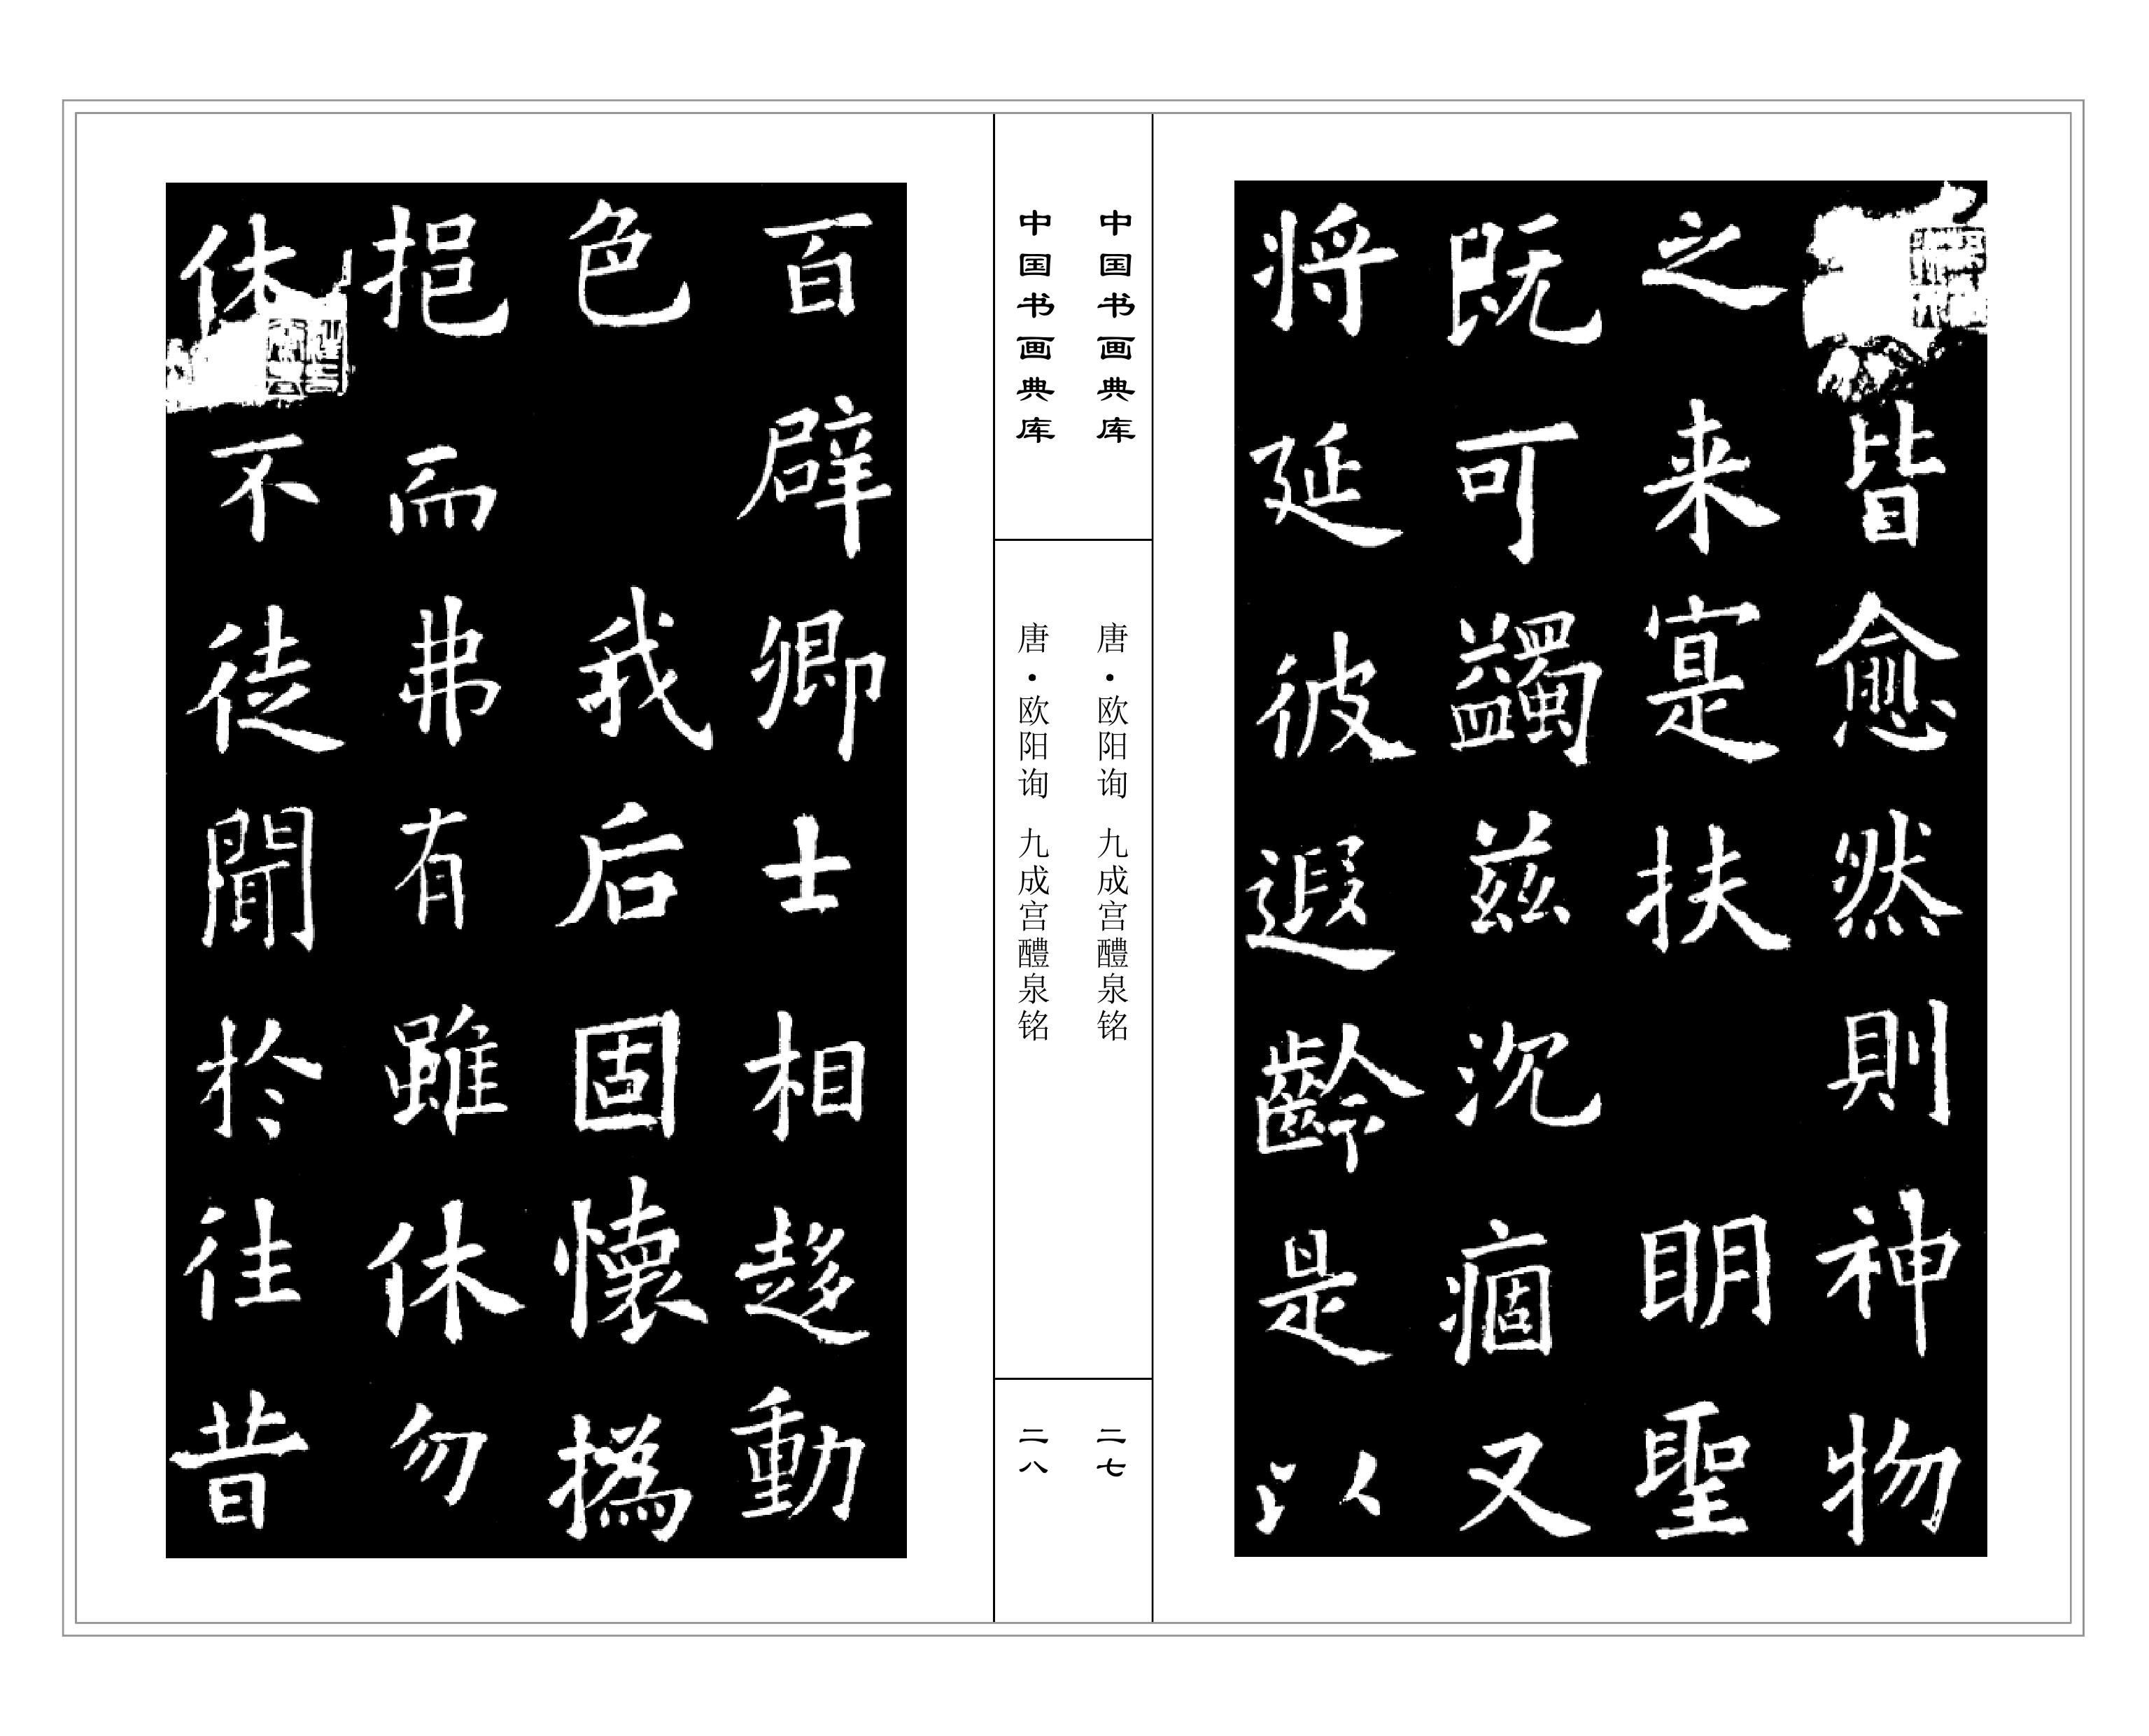 皆愈然則神物
之来寔扶明聖
既可蠲兹沉痼又
将延彼遐齡是以
中国书画典库
唐·欧阳询 九成宫醴泉铭
二七
中国书画典库
唐·欧阳询 九成宫醴泉铭
二八
百辟卿士相趍動
色我后固懷撝
挹而弗有雖休勿
休不徒聞於往昔